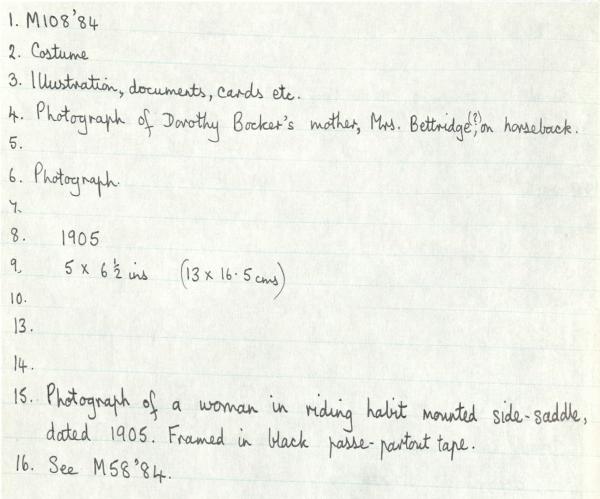 1. M108'84
2. Costume
3. Illustration, documents, cards etc.
4. Photograph of Dorothy Bocker's mother, Mrs. Bettridge(?), on horseback.
5.
6. Photograph.
7.
8. 1905
9. 5 x 6 ½ ins (13 x 16·5 cms)
10.
13.
14.
15. Photograph of a woman in riding habit mounted side-saddle,
dated 1905. Framed in black passe-partout tape.
16. See M58'84.